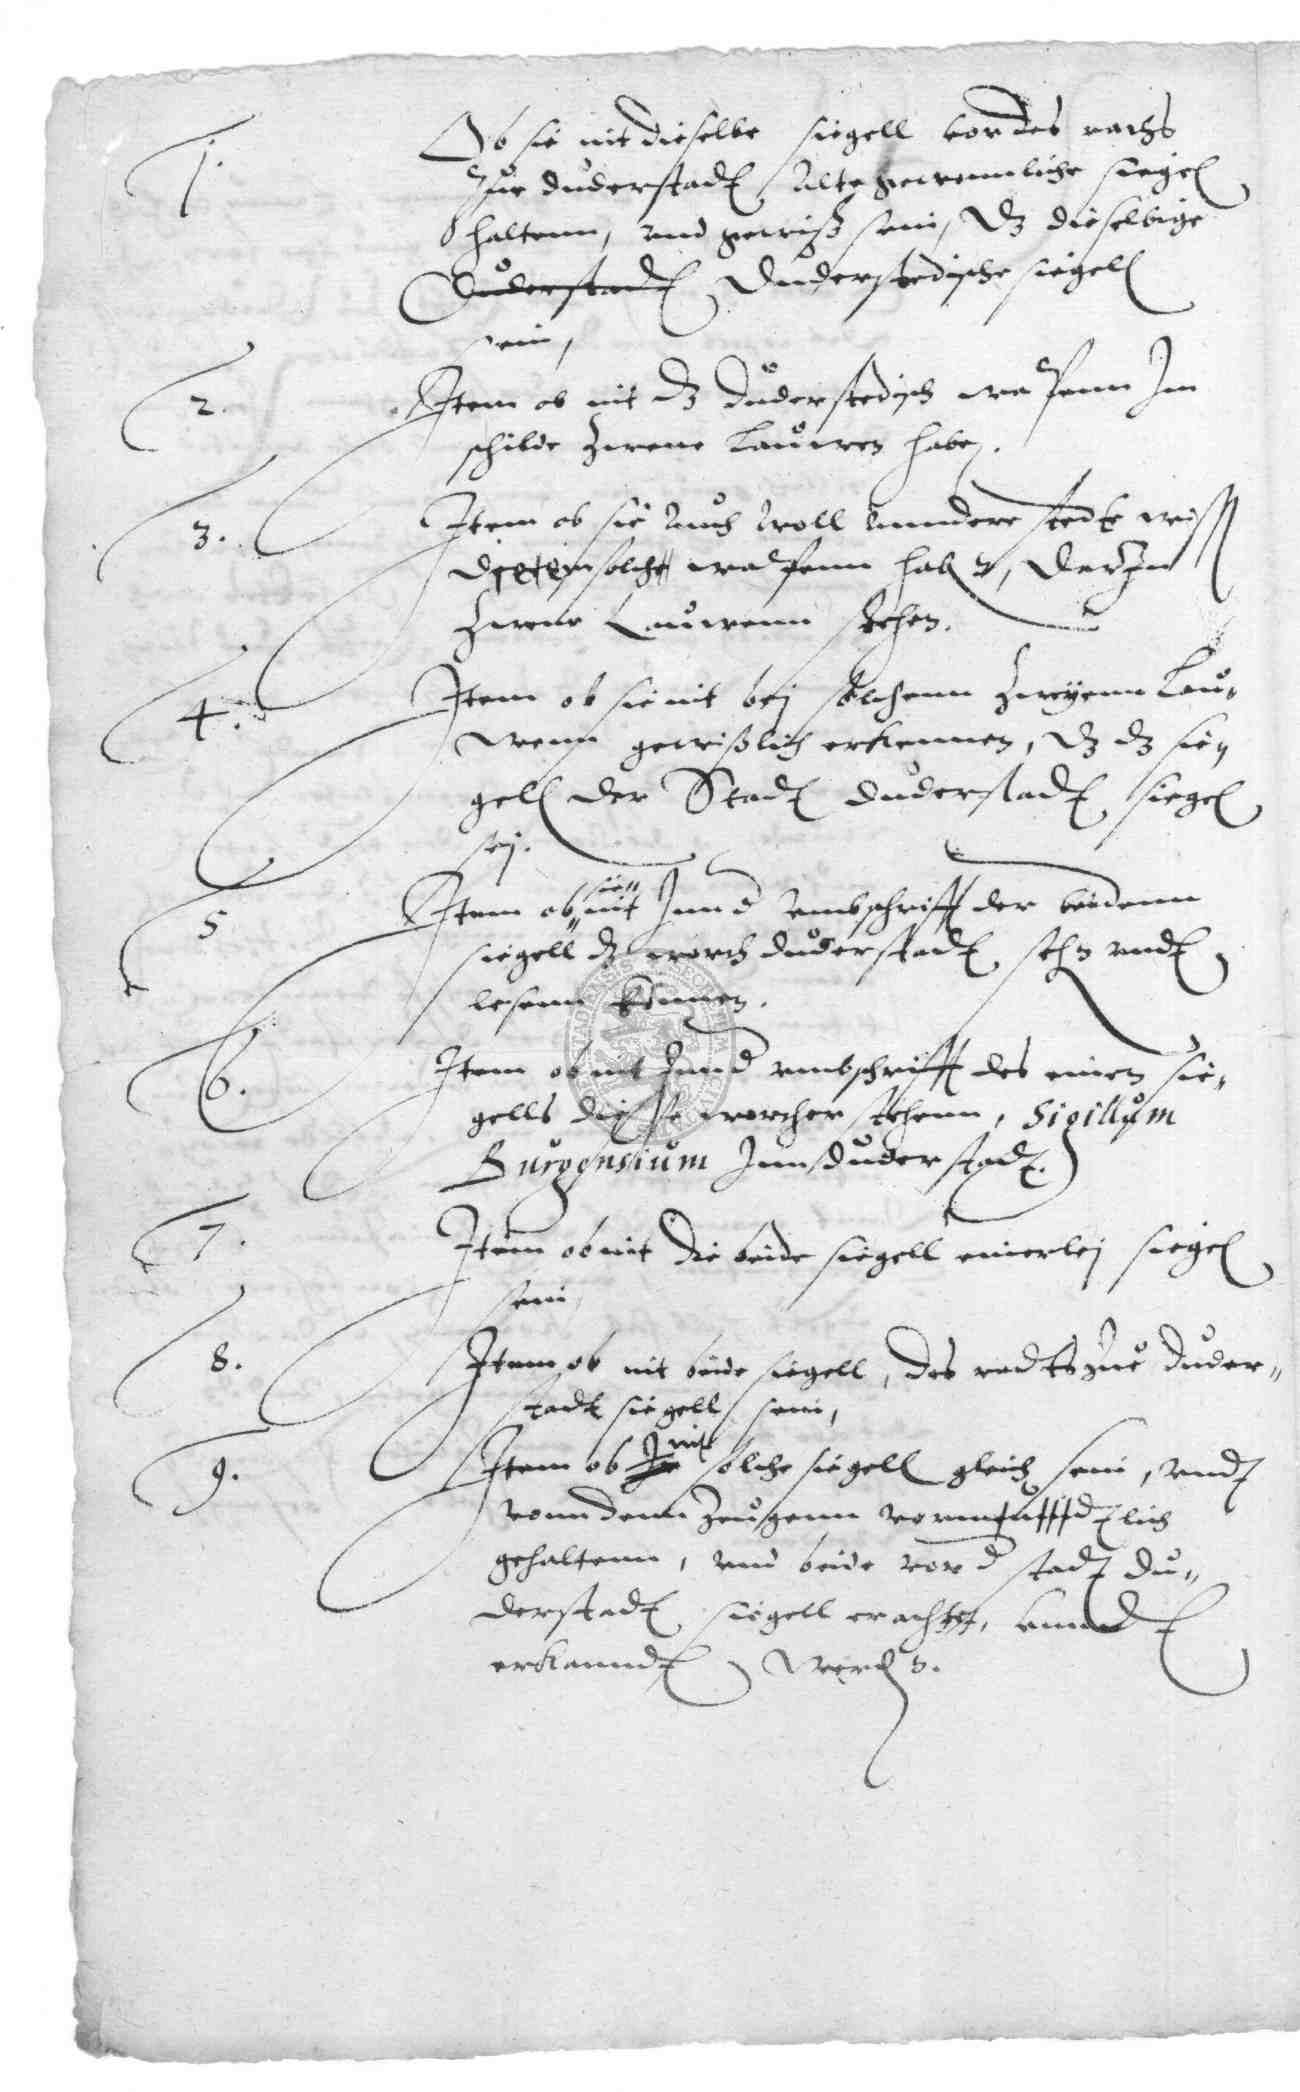 1.
Ob sie nit dieselbe siegell vor des raths
Zue Duderstadt alte gewonnliche siegel
haltenn, vnd gewiß sein, dz dieselbige
Duderstadt Duderstedische siegell
sein,
2.
Item ob nit dz Duderstedisch wapenn Im
schilde Zwene Lauwen haben.
3.
Item ob sie auch woll anndere stedte wissen
die ein solche wapenn haben, dar In
Zwene Lauwenn stehen.
4.
Item ob sie nit bej solchenn Zweyenn Lau„
wenn gewißlich erkennen, dz dz sie„
gell der Stadt Duderstadt siegel
sej.
5
Item ob sie nit Inn d vmbschrifft der beidenn
siegell dz worth Duderstadt sehen vndt
lesenn können.
6.
Item ob nit Inn d vmbschrifft des einen sie„
gells diesse worther stehenn, Sigillum
Burgensium Inn Duderstadt.
7.
Item ob nit die beide siegell einerlej siegel
sein
8.
Item ob nit beide siegell, des radts Zue Duder„
stadt siegell sein,
9.
Item ob nit solche siegell gleich sein, vndt
vonn denn Zeugenn vornunfftdlich
gehaltenn, vnd beide vor d stadt Du„
derstadt siegell erachtet, vnnd
erkanndt werden.